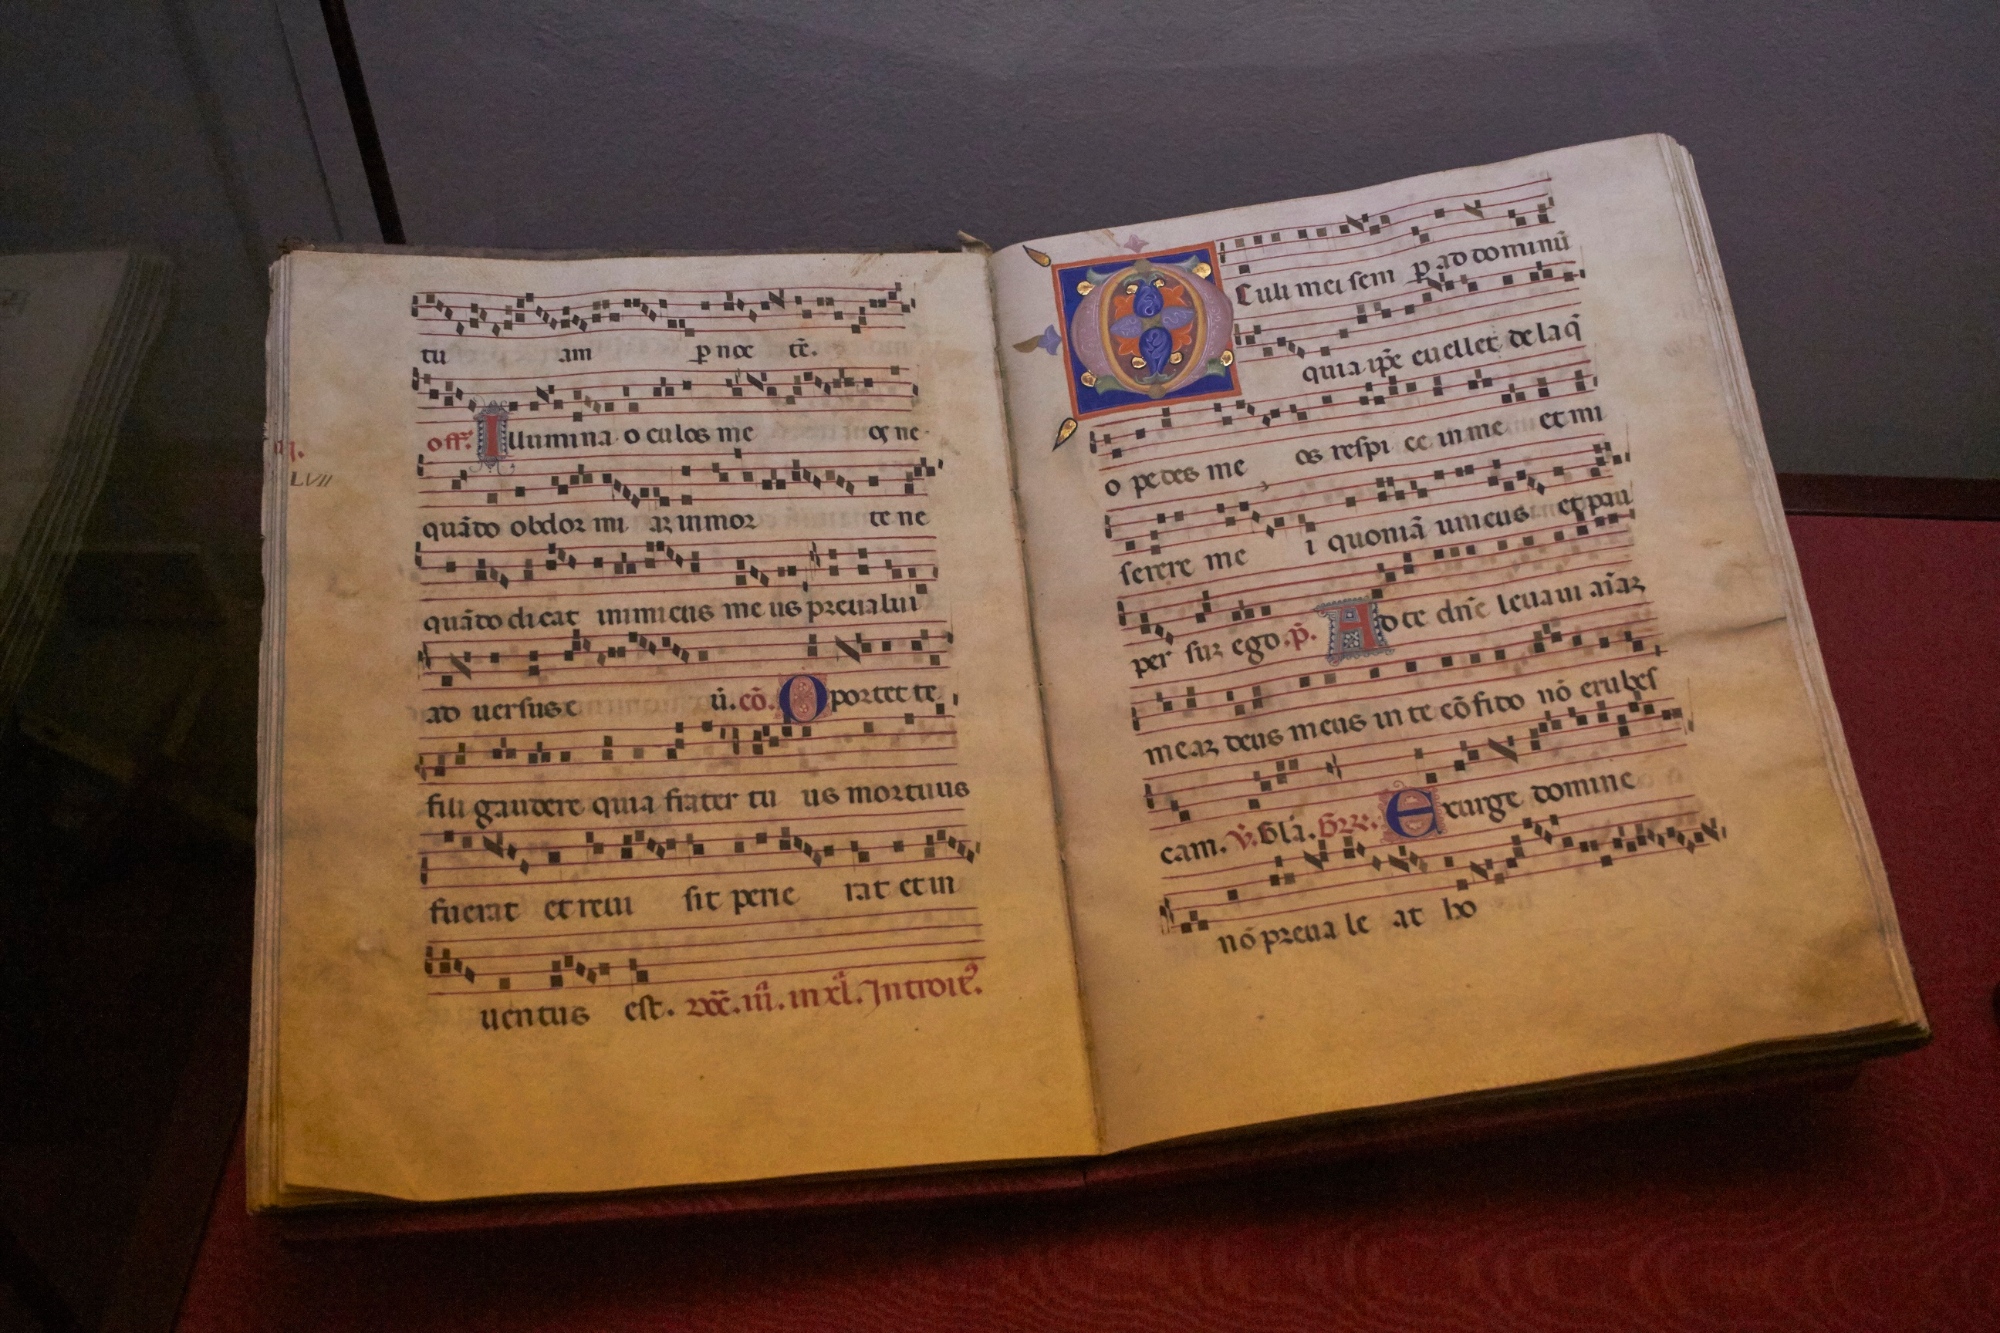 tu am p̲ noc tē.
off. Illumina oculos me os ne
q.
LVII
quādo obdormi am in mor te ne
quādo dicat inimicus me us preualui
ad uersus e ū. cō. Oportet te
fili gaudere quia frater tu us mortuus
fuerat et reui sit perie rat et in
uentus est. Dōc. iii. in xl. Introit.
Oculi mei sem p̲ ad dominū
quia ip̄e euellet de laq̄
o pedes me os respi ce in me et mi
serere me i quoniā unicus et pau
per sum ego. p̄. Ad te dn̄e leuaui aīam
meam deus meus in te cōfido nō erubes
cam. V̄. Gl̄a. Gr̄. Exurge domine
nō preua le at ho